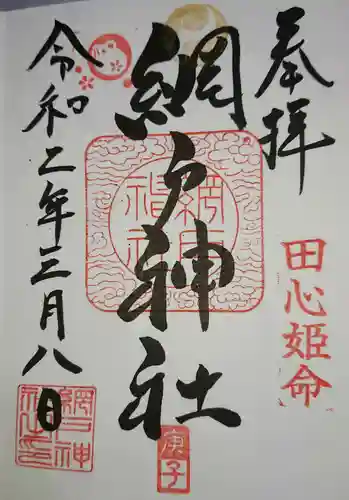 奉拝
田心姫命
網戸神社
庚子
令和二年三月八日
網戸神社